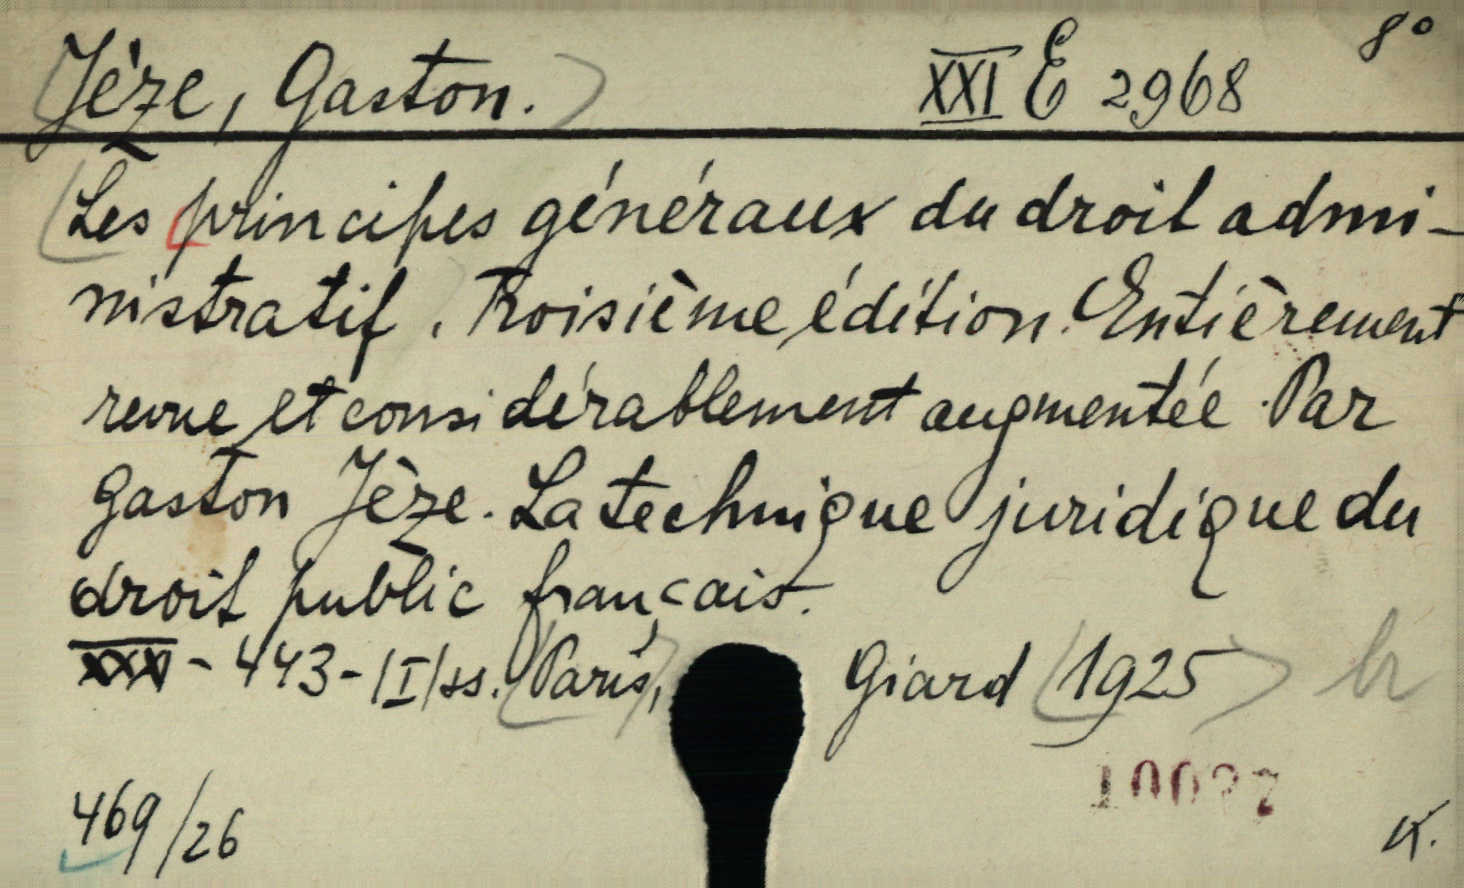 8°
Jèze, Gaston. XXI E 2968
Les principes généraux du droit admi-
nistratif. Troisième édition. Entièrement
revue et considérablement augmentée. Par
Gaston Jèze. La technique juridique du
droit public français.
XXX - 443 - |I| ss. Paris, Giard 1925
469/26
K.